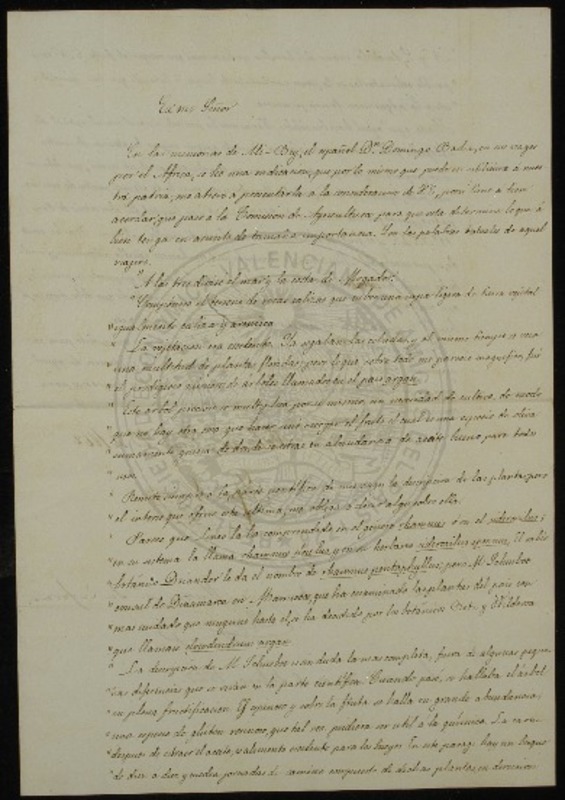 Exmo Señor
En las memorias de Ali-Bey, el español Dn. Domingo Badia, en su viage
por el Africa, se lee una indicacion, que por lo mismo que puede ser utilisima á nues
tra patria, me atrevo a presentarla á la consideracion de V.E. por si tiene a bien
acordar, que pase á la Comision de Agricultura para que esta determine lo que á
bien tenga en asunto de tamaña importancia. Son las palabras testuales de aquel
viajero.
"A las tres divisé el mar y la costa de Mogador.
"Componese el terreno de rocas calizas que cubre una capa ligera de tierra vejetal
"igualmente caliza y arenisca
"La vejetacion era escelente. Ya segaban las cebadas, y al mismo tiempo se veia
"una multitud de plantas floridas; pero lo que sobre todo me parecio magnifico, fué
"el prodigioso número de arboles llamados en el pais argan.
"Este arbol precioso se multiplica por si mismo, sin necesidad de cultivo, de modo
"que no hay otra cosa que hacer sino coger el fruto el cual es una especie de oliva
"sumamente gruesa de donde se estrae en abundancia de aceite bueno para todos
"usos.
"Remito siempre a la parte cientifica de mi viage la descripcion de las plantas; pero
"el interes que ofrece esta ultima, me obliga a decir algo sobre ella.
"Parece que Lineo la ha comprendido en el genero rhamnus ó en el sideroxilus;
"en su sistema la llama rhamnus siculus y en su herbario sideroxilus spinosus. El sabio
"botánico Dryander le da el nombre de rhamnus pentaphyllus; pero M. Schusboe
"consul de Dinamarca en Marruecos, que ha examinado las plantas del pais con
"mas cuidado que ninguno hasta el, se ha decidido por los botánicos Retz y Wildenow
"que llaman eleodendrum argan
"La descripcion de M. Schusboe es sin duda la mas completa, fuera de algunas peque
"ñas diferencias que se verán en la parte cientifica. Cuando pasé, se hallaba el árbol
"en plena fructificacion. Es espinoso y sobre la fruta se halla en grande abundancia
"una especie de gluten resinoso, que tal vez pudiera ser util a la quimica.
"despues de estraer el aceite, es alimento escelente para los bueyes. En este parage hay un bosque
"de diez a diez y media jornadas de camino compuesto de dichas plantas, en direccion